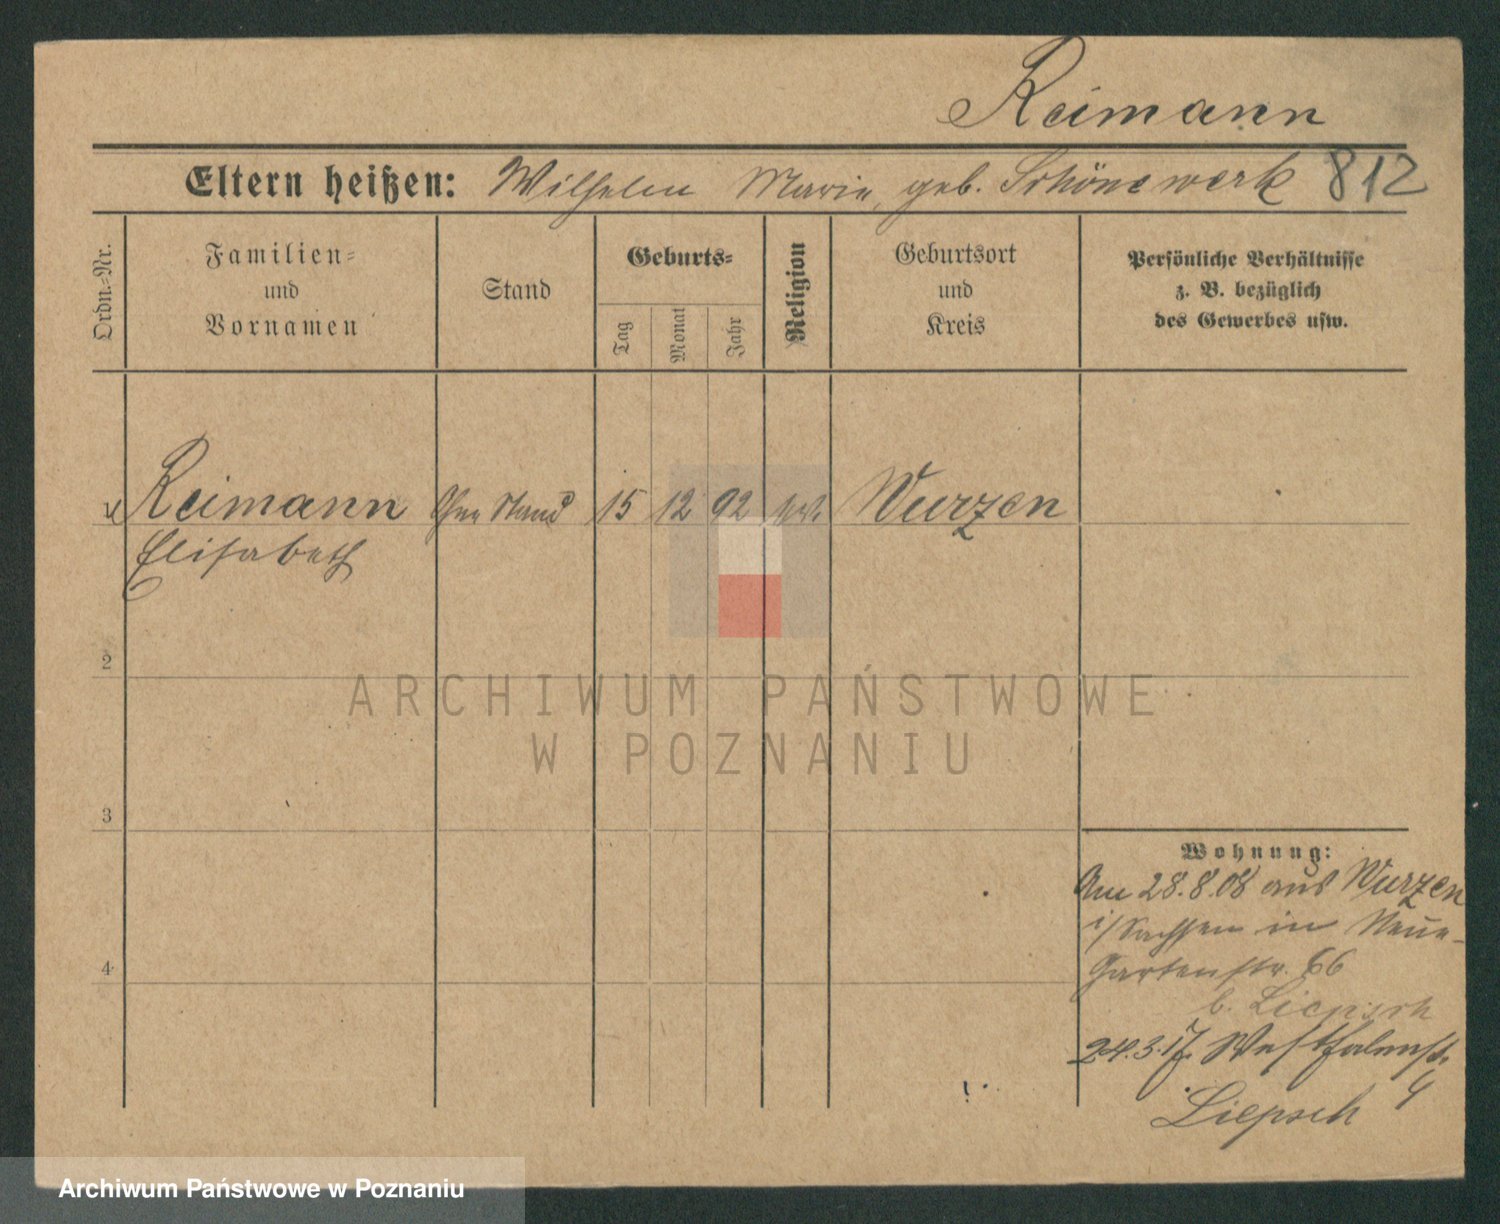 Reimann
Eltern heißen: Wilhelm Marie, geb. Schönewerk 812
Ordn.=Nr.
Familien=
und
Vornamen
Stand
Geburts=
Tag
Monat
Jahr
Religion
Geburtsort
und
Kreis
Persönliche Verhältnisse
z. B. bezüglich
des Gewerbes usw.
1 Reimann Ohne Stand 15 12 92 Wurzen
Elisabeth
2
3
4
Wohnung:
Am 28.8.08 aus Wurzen
i/Sachsen in Neue-
Gartenstr. 66
b. Liepsch
24.3.17. Westfalenstr.
4
Liepsch
ARCHIWUM PAŃSTWOWE
W POZNANIU
Archiwum Państwowe w Poznaniu